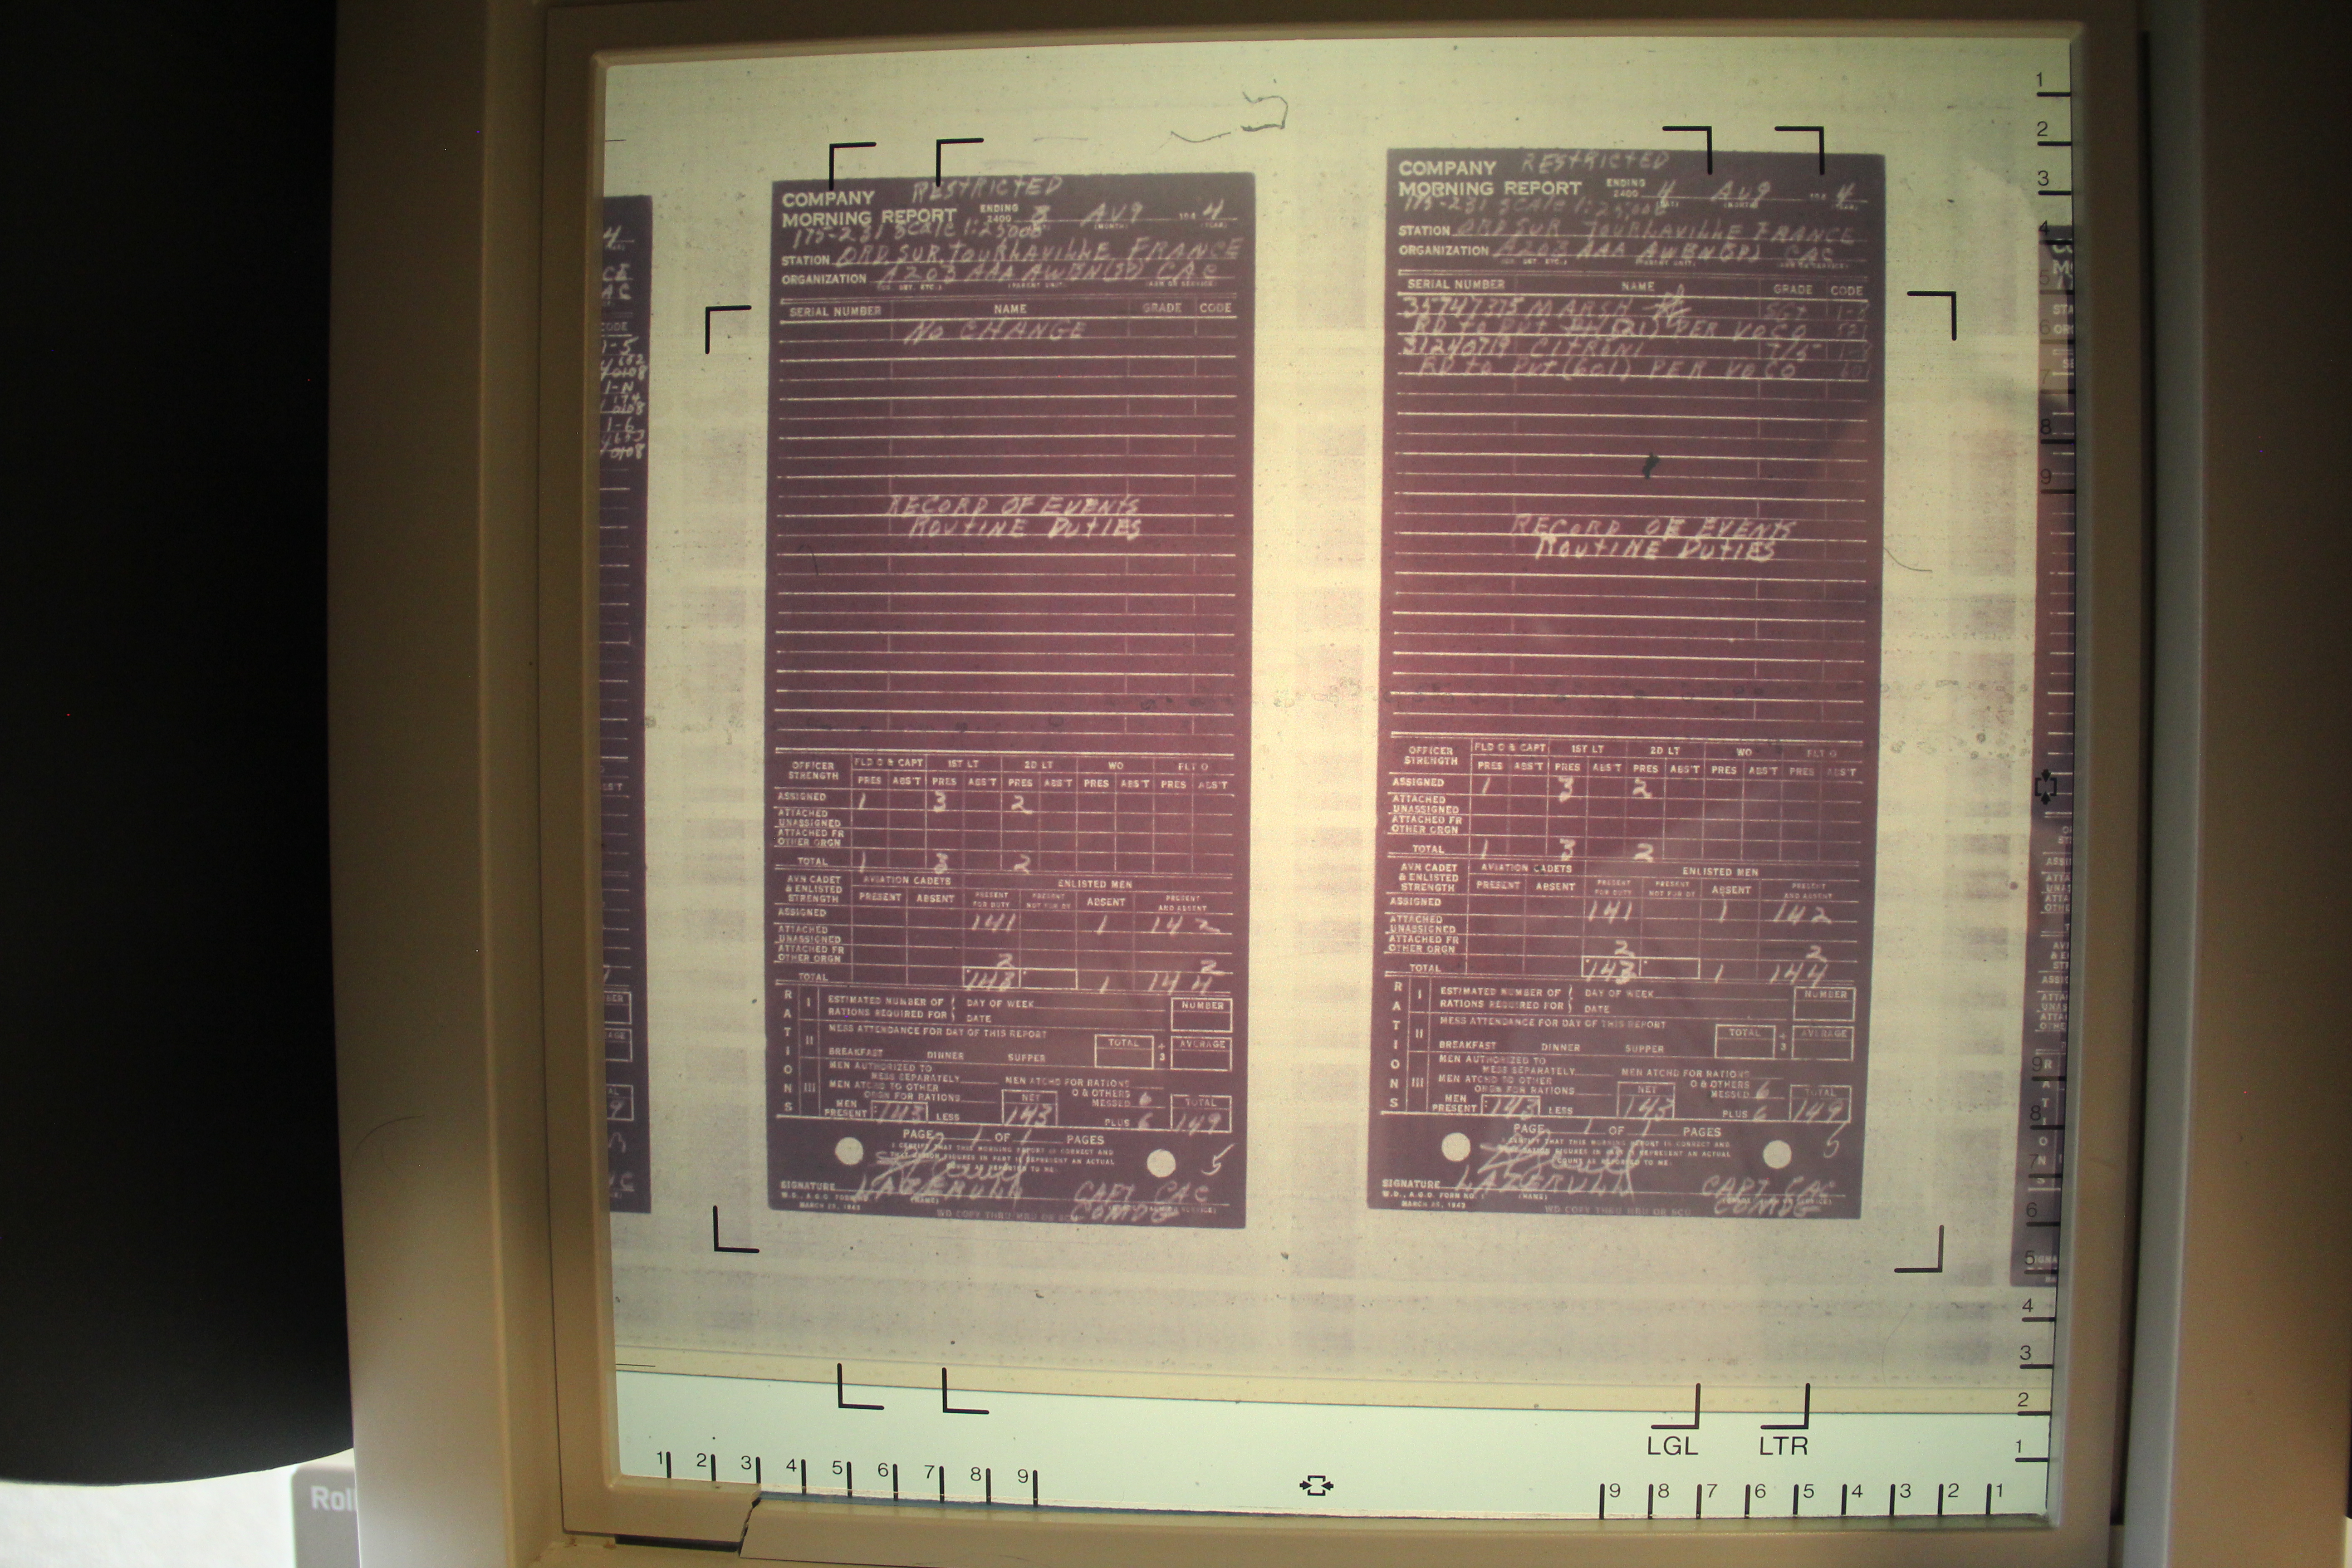 COMPANY RESTRICTED
MORNING REPORT ENDING 2400 3 AUG 194 4
175-231 SCALE 1:25000
STATION ORD. SUR. TOURLAVILLE FRANCE
ORGANIZATION A 203 AAA AWBN(SP) CAC
SERIAL NUMBER NAME GRADE CODE
NO CHANGE
RECORD OF EVENTS
ROUTINE DUTIES
OFFICER STRENGTH FLD O & CAPT 1ST LT 2D LT WO FLT O
PRES ABS'T PRES ABS'T PRES ABS'T PRES ABS'T PRES ABS'T
ASSIGNED 1 3 2
ATTACHED UNASSIGNED
ATTACHED FR OTHER ORGN
TOTAL 1 3 2
AVN CADET & ENLISTED STRENGTH AVIATION CADETS ENLISTED MEN
PRESENT ABSENT PRESENT FOR DUTY PRESENT NOT FOR DY ABSENT PRESENT AND ABSENT
ASSIGNED 141 1 142
ATTACHED UNASSIGNED
ATTACHED FR OTHER ORGN 2 2
TOTAL 143 1 144
RATIONS
I ESTIMATED NUMBER OF RATIONS REQUIRED FOR DAY OF WEEK DATE NUMBER
II MESS ATTENDANCE FOR DAY OF THIS REPORT
BREAKFAST DINNER SUPPER TOTAL ÷ 3 AVERAGE
III MEN AUTHORIZED TO MESS SEPARATELY MEN ATCHD FOR RATIONS
MEN ATCHD TO OTHER ORGN FOR RATIONS NET O & OTHERS MESSED 6 TOTAL
MEN PRESENT 143 LESS 143 PLUS 6 149
PAGE 1 OF 1 PAGES
I CERTIFY THAT THIS MORNING REPORT IS CORRECT AND
THAT RATION FIGURES IN PART II REPRESENT AN ACTUAL
COUNT AS REPORTED TO ME. 5
SIGNATURE CAPT CAC
W.D., A.G.O. FORM NO. 1 (NAME)
MARCH 25, 1943 COMDG
COMPANY RESTRICTED
MORNING REPORT ENDING 2400 4 AUG 194 4
175-231 SCALE 1:25,000
STATION ORD SUR TOURLAVILLE FRANCE
ORGANIZATION A 203 AAA AWBN(SP) CAC
SERIAL NUMBER NAME GRADE CODE
35747375 MARSH SGT
RD to Pvt (521) PER VOCO 521
31240719 CITRONI T/5
RD to Pvt (601) PER VOCO 601
RECORD OF EVENTS
ROUTINE DUTIES
OFFICER STRENGTH FLD O & CAPT 1ST LT 2D LT WO FLT O
PRES ABS'T PRES ABS'T PRES ABS'T PRES ABS'T PRES ABS'T
ASSIGNED 1 3 2
ATTACHED UNASSIGNED
ATTACHED FR OTHER ORGN
TOTAL 1 3 2
AVN CADET & ENLISTED STRENGTH AVIATION CADETS ENLISTED MEN
PRESENT ABSENT PRESENT FOR DUTY PRESENT NOT FOR DY ABSENT PRESENT AND ABSENT
ASSIGNED 141 1 142
ATTACHED UNASSIGNED
ATTACHED FR OTHER ORGN 2 2
TOTAL 143 1 144
RATIONS
I ESTIMATED NUMBER OF RATIONS REQUIRED FOR DAY OF WEEK DATE NUMBER
II MESS ATTENDANCE FOR DAY OF THIS REPORT
BREAKFAST DINNER SUPPER TOTAL ÷ 3 AVERAGE
III MEN AUTHORIZED TO MESS SEPARATELY MEN ATCHD FOR RATIONS
MEN ATCHD TO OTHER ORGN FOR RATIONS NET O & OTHERS MESSED 6 TOTAL
MEN PRESENT 143 LESS 143 PLUS 6 149
PAGE 1 OF 1 PAGES
I CERTIFY THAT THIS MORNING REPORT IS CORRECT AND
THAT RATION FIGURES IN PART II REPRESENT AN ACTUAL
COUNT AS REPORTED TO ME. 5
SIGNATURE CAPT CAC
W.D., A.G.O. FORM NO. 1 (NAME)
MARCH 25, 1943 COMDG
LGL LTR
1 2 3 4 5 6 7 8 9
9 8 7 6 5 4 3 2 1
Roll